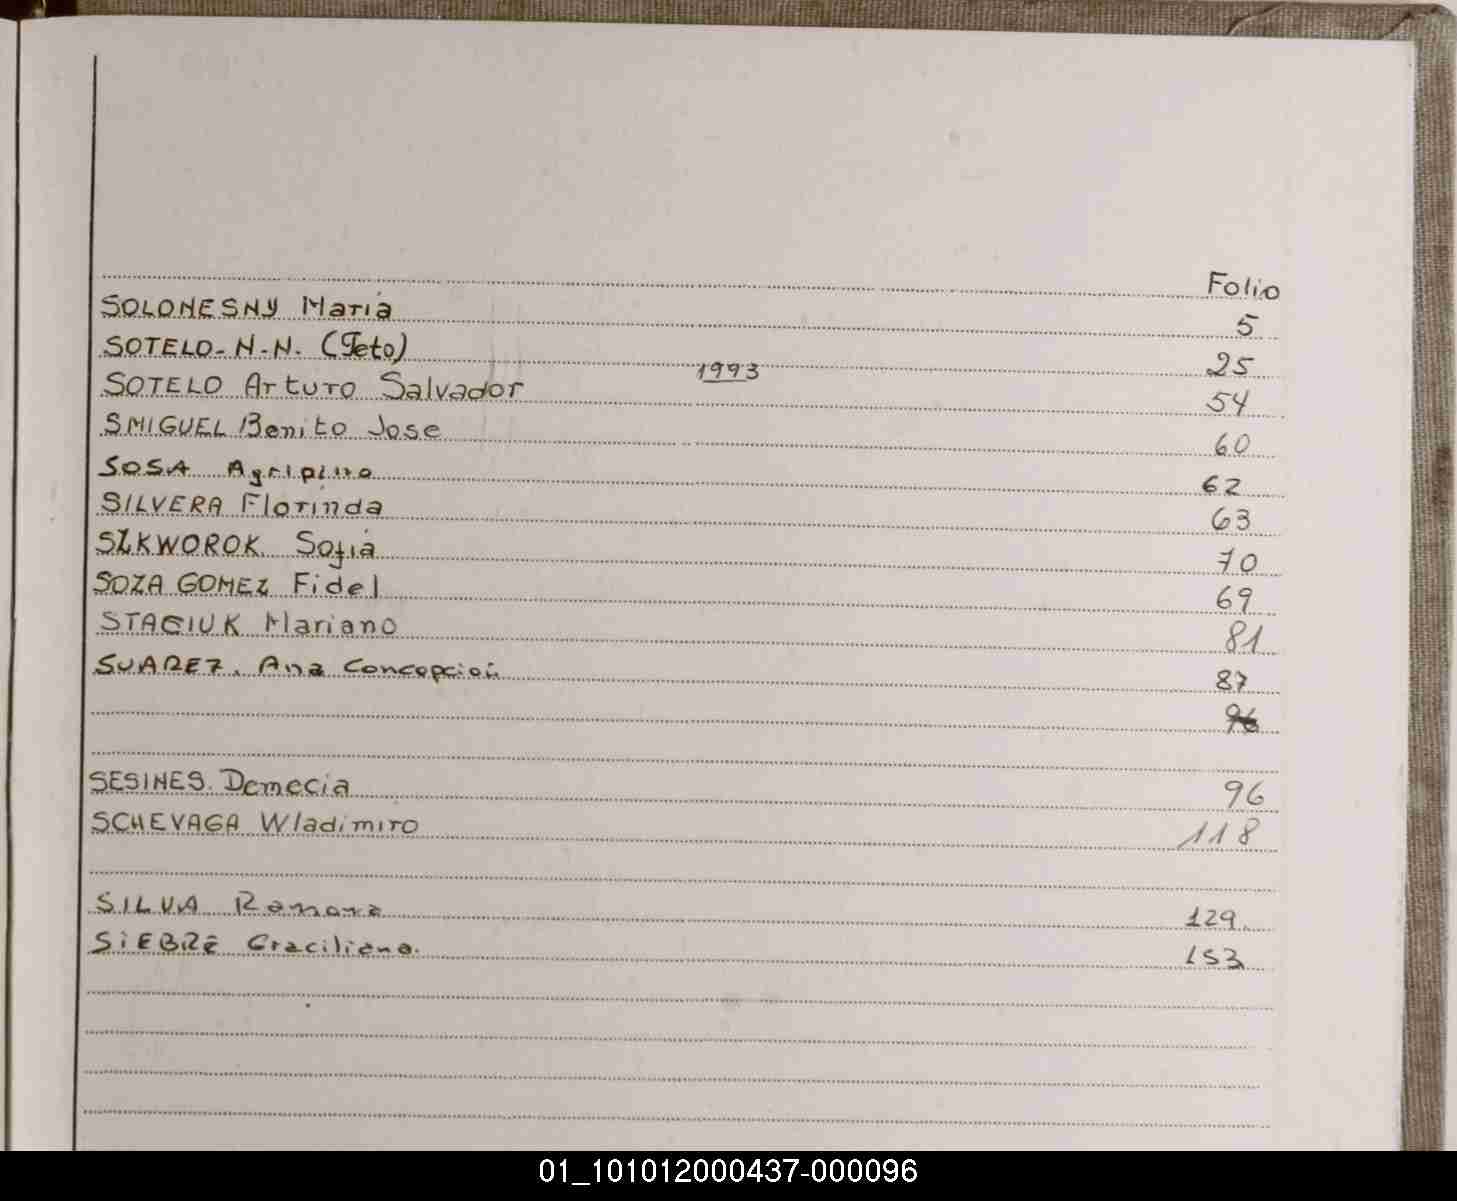 Folio
SOLONESNY Maria 5
SOTELO - N - N. (Feto) 25
1993
SOTELO Arturo Salvador 54
SMIGUEL Benito Jose 60
SOSA Agripino 62
SILVERA Florinda 63
SZKWOROK Sofia 70
SOZA GOMEZ Fidel 69
STACIUK Mariano 81
SUAREZ. Ana Concepción 87
96
SESINES. Demecia 96
SCHEVAGA Wladimiro 118
SILVA Ramona 129.
SIEBRE Graciliano. 153
01_101012000437-000096